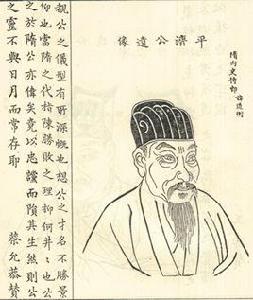 隋內史侍郎 諱道衡
平濟公遺像
覩公之儀型有所深慨也想公之才名不勝景
仰也當隋之代指陳勝敗之理抑何井井也公
之於隋公亦偉矣竟以忠讜而隕其生然則公
之靈不與日月而常存耶 蔡允恭贊